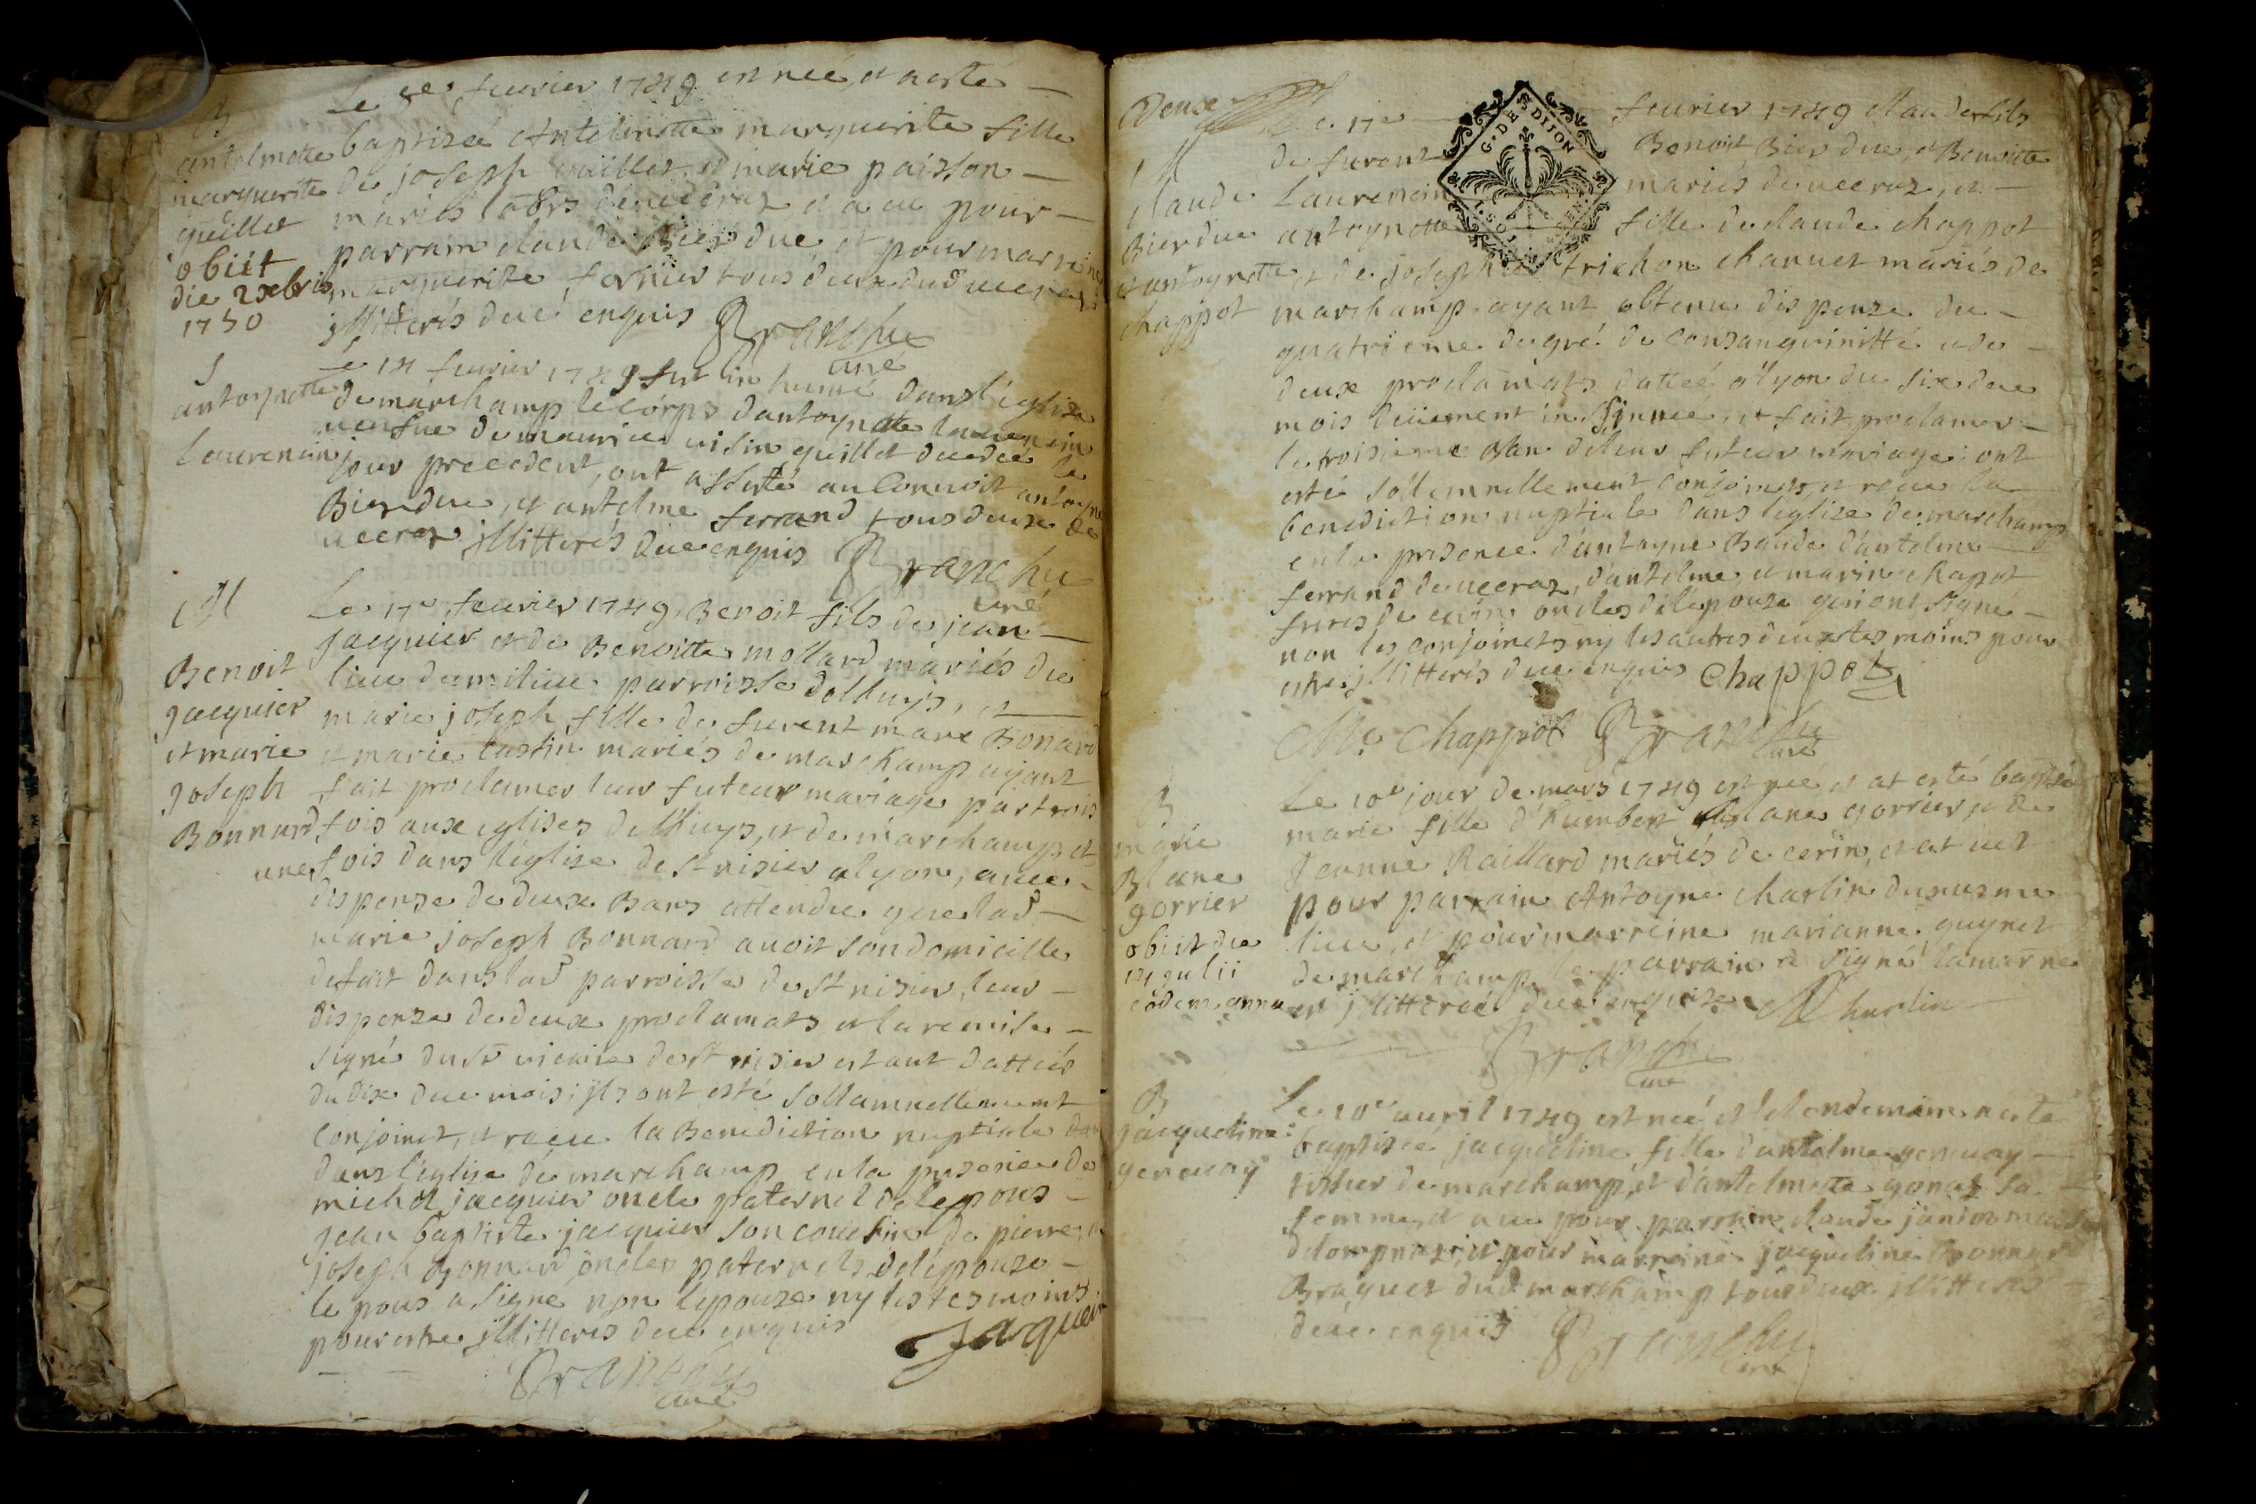 Le 8e feuvrier 1749 est neé, et a esté
B
antelmette
marguerite
guillet
obiit
die 2 xbris
1750
baptizeé Antelmette marguerite fille
de joseph guillet, et marie paisson
mariés labrs de uceraz et a eu pour
parrain claude Bierdue et pour marreine
marguerite fornier tous deux dud uceraz
jllitterés duë enquis Branchu
curé
S
antoynette
laurencin
Le 14 feuvrier 1749 fut inhumé dans l'églize
de marchamp le corps d'antoynette laurencin
veufue de maurice visin guillet decedeé le
jour precedent, ont assisté au convoit antoyne
Bierdue, et antelme ferrand tous deux de
uceraz jllitterés duë enquis Branchu
curé
M
Benoit
jacquier
et marie
joseph
Bonnard
Le 17e feuvrier 1749, Benoit fils de jean
jacquier et de Benoitte mollard mariés du
lieu de milieu parroisse de lhuys, et
marie joseph fille de furent marc Bonard
et marie castin mariés de marchamp ayant
fait proclamer leur futeur mariage par trois
fois aux eglises de lhuys, et de marchamp et
une fois dans l'églize de st nisier a lyon, auec
dispense de deux Bans attendu que lad
marie joseph Bonnard auoit son domicille
de fait dans lad parroisse de st nisier, leur
dispense de deux proclamats et la remise
signé du sr vicaire de st nisier estant datteés
du dix due mois; jls ont esté sollamnellement
conjoinct, et receu la Benediction nuptiale
dans l'églize de marchamp en la presence de
michel jacquier oncle paternel de l'epous
jean baptiste jacquier son cousin de pierre, et
joseph Bonnard oncles paternels de l'épouze
le pous a signe non lepouze ny les tesmoins
pour estre jllitteres duë enquis Jaquier
Branchu
curé
Deux
G. DE DIJON
M
claude
Bierdue
et antoynette
chappot
Le 17e feuvrier 1749 claude fils
de furent Benoit Bierdue, et Benoitte
Laurencin mariés de uceraz, et
antoynette fille de claude chappot
et de josephte trichon chanuet mariés de
marchamp ayant obtenu dispense du
quatrieme degré de consanguinitté et de
deux proclamats datteé a lyon du six due
mois et fait proclamer
le troisieme Ban de leur futeur mariage ont
esté sollemnellement conjoincts, et receu la
benediction nuptiale dans l'églize de marchamp
en la presence d'antoyne Bonde d'antelme
ferrand de uceraz, d'antelme, et marin chapot
freres de cerin oncles de l'épouze qui ont signe
non les conjoincts ny les autres deux tesmoins pour
estre jllitterés duë enquis Chappot
Chappot Branchu
curé
B
marie
Blanc
gorrier
obiit die
14 julii
eodem anno
Le 10e jour de mars 1749 est neé et at esté baptisée
marie fille d'humbert Blanc gorrier, et de
Jeanne Raillard mariés de cerin, et at uet
pour parrain Antoyne charlin du mesme
lieu, et pour marreine marianne guynet
de marchamp le parrain a signé la marne
est jllittereé duë enquize Charlin
Branchu
curé
B
jacqueline
genevay
Le 10e auril 1749 est neé et le lendemain a esté
baptizeé jacqueline fille d'antelme genevay
tissier de marchamp, et d'antelmette gonet sa
femme, et a eu pour parrain claude janin
de lompnaz, et pour marreine jacqueline Bonnard
Braguet dud marchamp tous deux jllitterés
duë enquis Branchu
curé